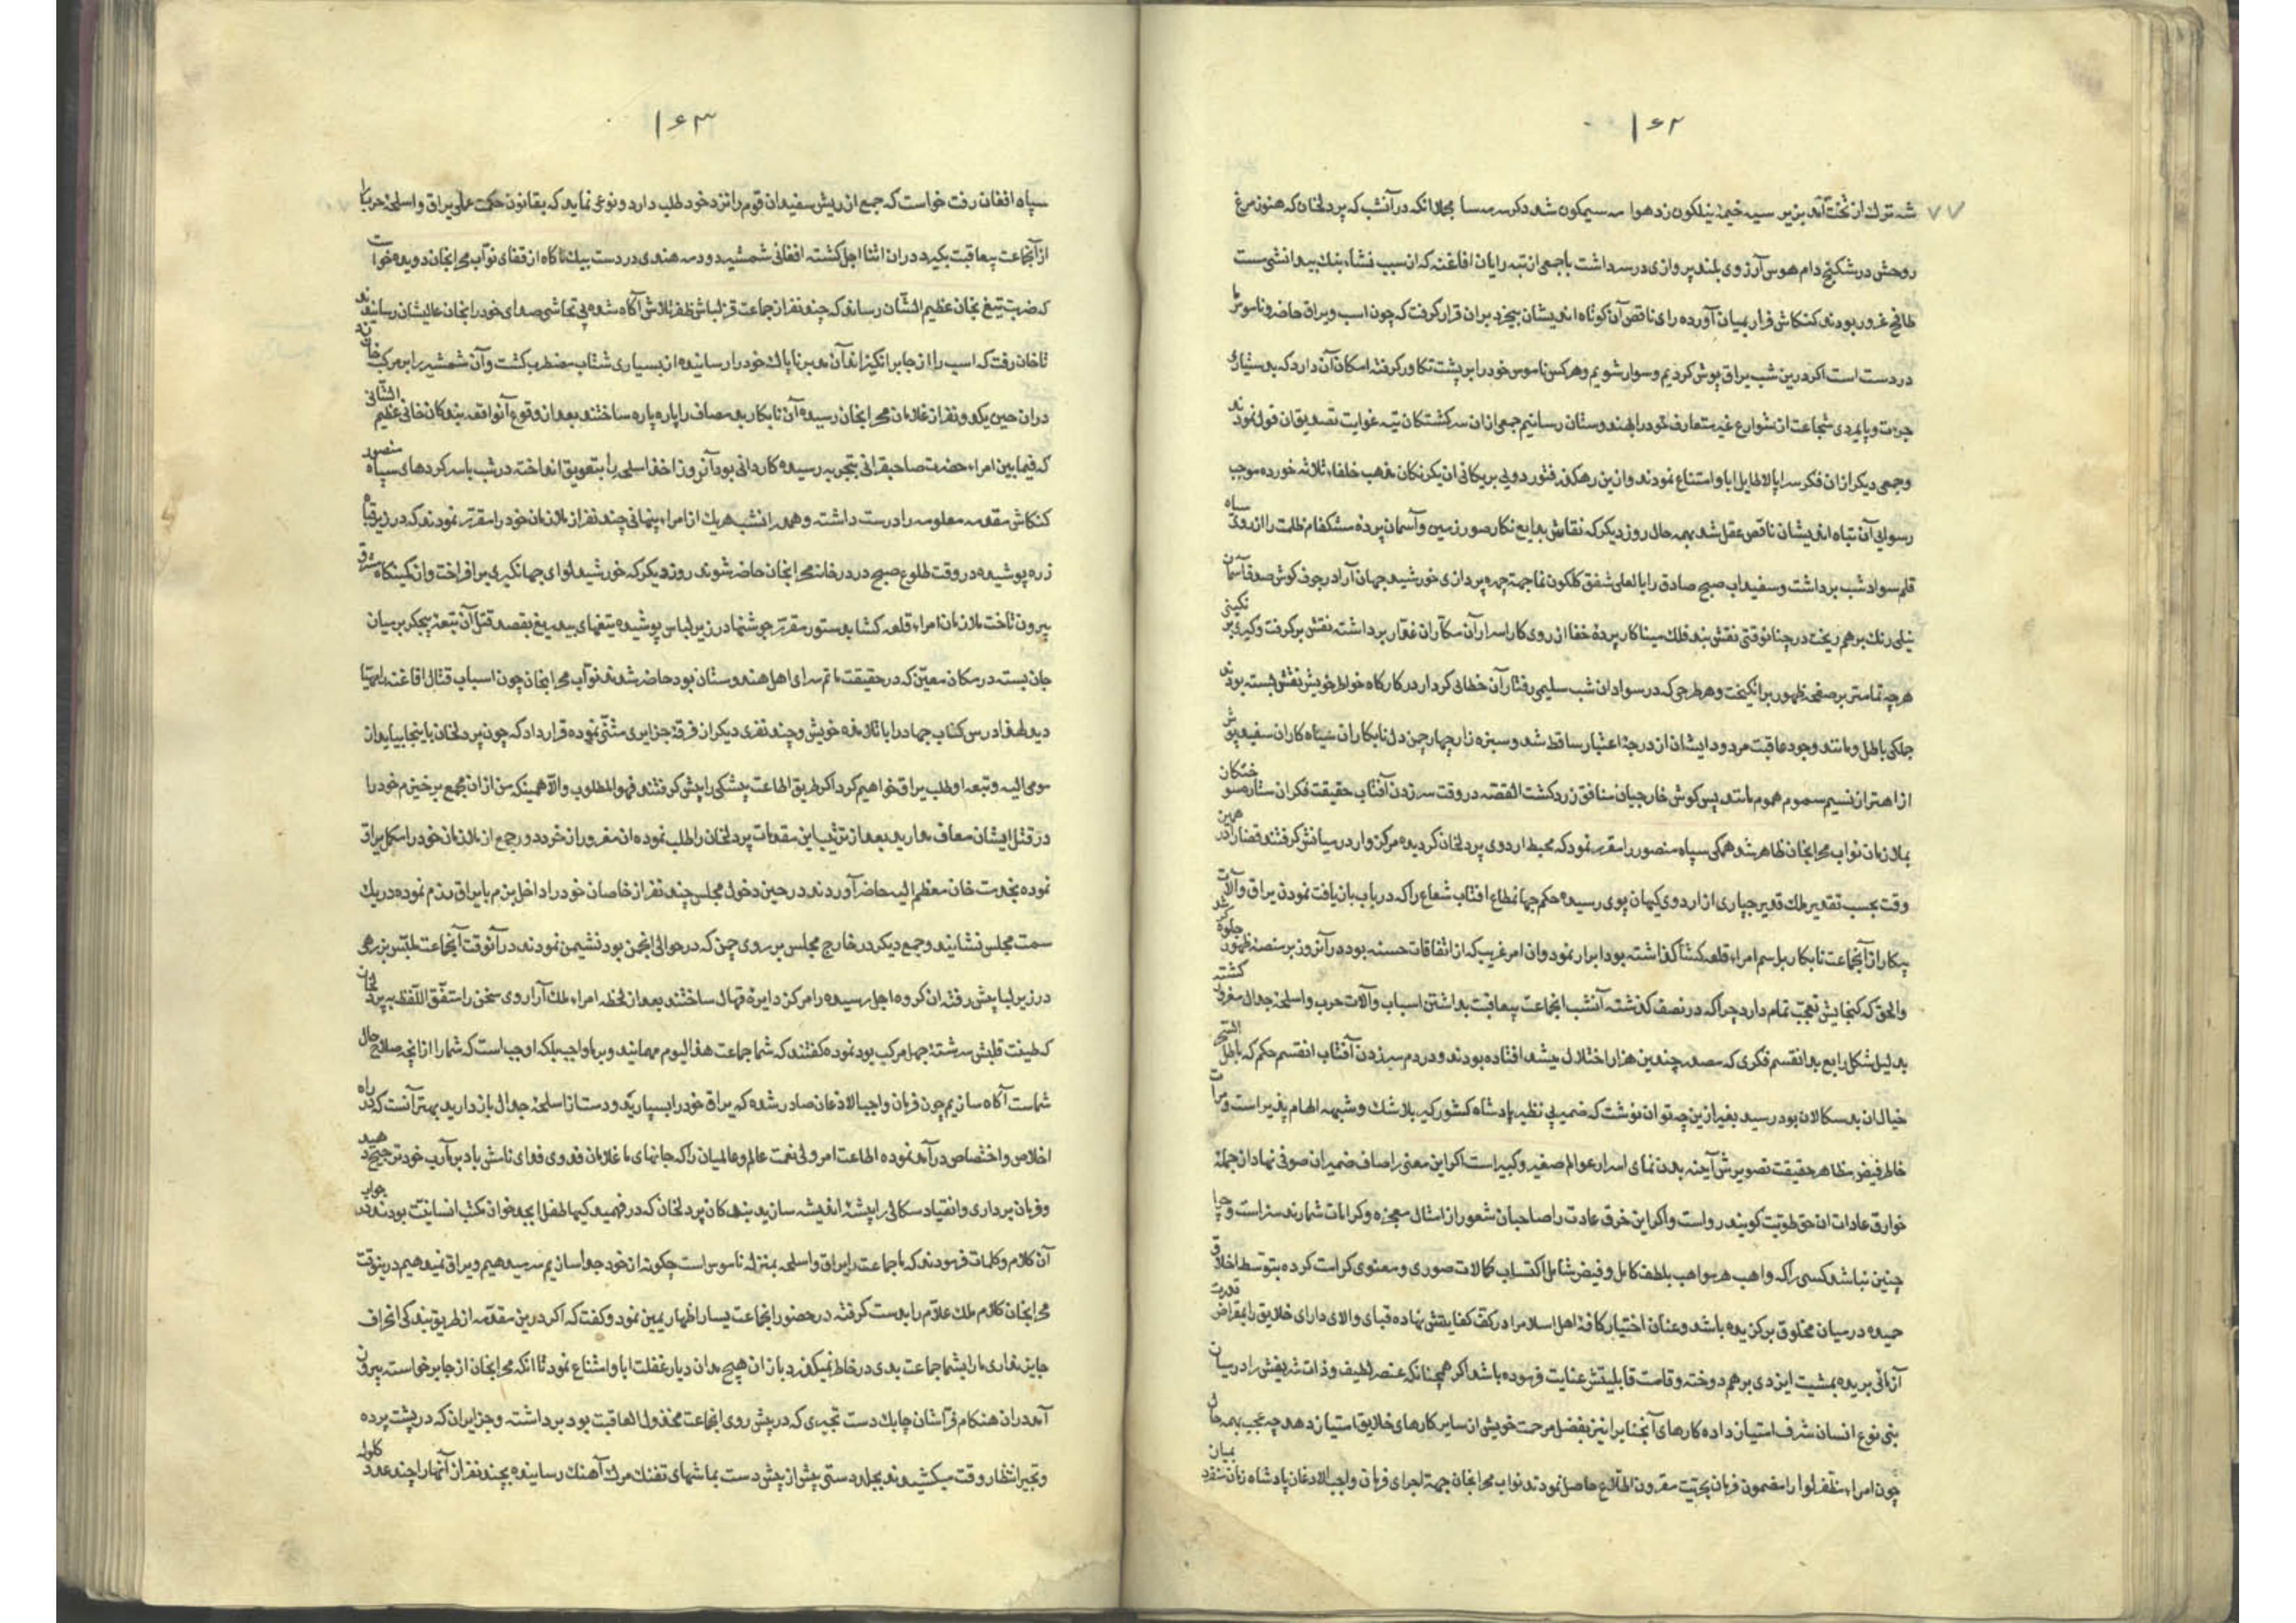 ۱۶۲
۷۷
شه ترک از تخت آمد بزیر سیه خیمهٔ نیلگون زد هوا سیمگون شد دگر مجملا انکه در آنشب که پردلخان که هنوز مرغ
روحش در شکنج دام هوس آرزوی بلند پروازی در سر داشت با جمعی از تبه رایان افاغنه که از سبب نشاء بنک بیدانشی مست
طافح غرور بودند کنکاش فرار بمیان آورده رای ناقص آن کوتاه اندیشان بیخرد بران قرار گرفت که چون اسب و یراق حاضر و ناموس ما
در دست است اگر درین شب یراق پوش گردیم و سوار شویم و هر کس ناموس خود را بر پشت تکاور گرفته امکان آن دارد که بدستیاری
جرءت و پایمردی شجاعت از شوارع غیر متعارف خود را بهندوستان رسانیم جمعی ازان سرکشتکان تیه غوایت تصدیق ان قول نمودند
و جمعی دیگر ازان فکر سراپا لاطایل ابا و امتناع نمودند و ازین رهگذر فتور دویی بریکانی ان یکرنکان مذهب خلفاء ثلاثه خورده موجب
رسوایی آن تباه اندیشان ناقص عقل شد بهمه حال روز دیگر که نقاش بدایع نگار صور زمین و آسمان پرده مشکفام ظلمت را از روی سیاه
قلم سواد شب برداشت و سفیداب صبح صادق را با لعلی شفق کلکون نما جهة چهره پردازی خورشید جهان آرا در جوف گوش صدف آسمان
نیلی رنک برهم ریخت در چنانوقتی نقش بند فلک مینا کار پردهٔ خفا از روی کار اسرار آن مکاران غدار برداشته نقش برگرفت و گیری نکینی
هر چه تمامتر بر صفحه ظهور برانگیخت و هر طرحی که در سوادان شب سلیمی رفتار آن خطائی کردار در کارگاه خواطر خویش نقش بسته بودند
جلکی باطل و مانند وجود عاقبت مردود ایشان از درجهٔ اعتبار ساقط شد و سبزه زار چهار چمن دل نابکاران سیاه کاران سفید پوش
از اهتراز نسیم سموم هموم مانند پس گوش خارجیان منافق زرد گشت القصه در وقت سر زدن آفتاب حقیقت فکر ان ستاره سوختکان
بملازمان نواب محرابخان ظاهر شد همگی سپاه منصور را مقرر نمود که محیط اردوی پردلخان گردیده مرکزوار در میانش گرفتند قضا را در همین
وقت بحسب تقدیر ملک قدیر جباری از اردوی کیهان پوی رسیده حکم جهانمطاع افتاب شعاع را که در باب بازیافت نمودن یراق و آلات
پیکار از آنجماعت نابکار باسم امراء قلعه کشا گذاشته بود ابرار نمود و ان امر غریب که از اتفاقات حسنه بود در آنروز بر منصهٔ ظهور جلوه گر شد
والحق که گنجایش تعجب تمام دارد چرا که در نصف گذشته آنشب انجماعت بیعاقبت بداشتن اسباب و آلات حرب و اسلحهٔ جدال مغرور گشته
بدلیل شکل رابع بدانقسم فکری که مصدر چندین هزار اختلال میشد افتاده بودند و در دم سر زدن آفتاب انقسم حکم که باطل السحر
خیالان بد سکالان بود رسید بغیر ازین چه توان نوشت که ضمیر بی نظیر پادشاه کشورگیر بلاشک و شبهه الهام پذیر است و مرات
خاطر فیض مظاهر حقیقت تصویرش آینه بدن نمای اسرار عوالم صغیر و کبیر است اگر این معنی را صاف ضمیران صوفی نهاد از جملهٔ
خوارق عادات ان حق طویت گویند رواست و اگر این خرق عادت را صاحبان شعور از امثال معجزه و کرامات شمارند سزاست و چرا
چنین نباشد کسی را که واهب هر مواهب بلطف کامل و فیض شامل اکتساب کمالات صوری و معنوی کرامت کرده بتوسط اخلاق
حمیده در میان مخلوق برگزیده باشد و عنان اختیار کافهٔ اهل اسلام را در کف کفایتش نهاده قبای والای دارای خلایق را بمقراض قدرت
آزمائی بریده بمشیت ایزدی برهم دوخته و قامت قابلیتش عنایت فرموده باشد اگر همچنانکه عنصر لطیف و ذات شریفش را در میان
بنی نوع انسان شرف امتیاز داده کارهای آنجنابرا نیز بفضل مرحمت خویش از سایر کارهای خلایق امتیاز دهد چه عجب بهمه حال
چون امراء ظفر لوا را مضمون فرمان بحجت مقرون اطلاع حاصل نمودند نواب محرابخان جهة اجرای فرمان واجب الاذعان پادشاه زمان بمیان
۱۶۳
سپاه افغان رفت خواست که جمع از ریش سفیدان قوم را نزد خود طلب دارد و نوعی نماید که بقانون حکمت عملی یراق و اسلحهٔ حرب را
از آنجماعت بیعاقبت بگیرد در ان اثنا اجل گشته افغانی شمشیر دو دمه هندی در دست بیک ناگاه از قفای نواب محرابخان دویده خواست
که ضربت تیغ بخان عظیم الشان رساند که چند نفر از جماعت قزلباش ظفر تلاش آگاه شده بی تحاشی صدای خود را بخان عالیشان رسانیدند
تا خان رفت که اسب را از جا برانگیزاند آن مدبر ناپاک خود را رسانیده از بسیاری شتاب مضطرب گشت و آن شمشیر را بر مرکب خان زد
در ان حین یکدو نفر از غلامان محرابخان رسیده آن نابکار بد مصاف را پاره پاره ساختند بعد از وقوع آنواقعه بندکان خانی عظیم الشانی
که فیمابین امراء حضرت صاحبقرانی بتجربه رسیده کاردانی بود آنروز اخذ اسلحه را بتعویق انداخته در شب با سرکردهای سپاه منصور
کنکاش مقدمه معلومه را درست داشته و همه رانشب هر یک از امراء پنهانی چند نفر از ملازمان خود را مقرر نمودند که در زیر قبا
زره پوشیده در وقت طلوع صبح در درخانه محرابخان حاضر شوند روز دیگر که خورشید لوای جهانگیری برافراخت و از کمینکاه مشرق
بیرون تاخت ملازمان امراء قلعه کشا بدستور مقرر جوشنها در زیر لباس پوشیده تیغهای بیدریغ بقصد قتل آن تبعهٔ بیجگر بر میان
جان بسته در مکان معین که در حقیقت ماتم سرای اهل هندوستان بود حاضر شدند نواب محرابخان چون اسباب قتال افاغنه را مهیا
دید لهذا درس کتاب جهاد را با تلامذه خویش و چند نفری دیگر از فرقهٔ جزایری مثنی نموده قرار داد که چون پردلخان باینجا بیاید از
مومی الیه و تبعه او طلب یراق خواهیم کرد اگر طریق اطاعت پیشکی را پیش گرفتند فهو المطلوب و الا همینکه من از ان مجمع برخیزم خود را
در قتل ایشان معاف مدارید بعد از ترتیب این مقدمات پردلخان را طلب نموده ان مغرور از خرد دور جمع از ملازمان خود را مکمل یراق
نموده بخدمت خان معظم الیه حاضر آوردند در حین دخول مجلس چند نفر از خاصان خود را داخل بزم با یراق رزم نموده در یک
سمت مجلس نشانید و جمع دیگر در خارج مجلس بر روی چمن که در حوالی انجمن بود نشیمن نمودند در آنوقت آنجماعت ملبس بزرهی
در زیر لباس پیش رفته ان گروه اجل رسیده را مرکز دایرهٔ قهال ساختند بعد از لحظه امراء ملک آرا روی سخن را متفق اللفظ به پردلخان
که طینت قلبش سرشتهٔ جهل مرکب بود نموده گفتند که شما جماعت هذا الیوم مهمانید و بر ما واجب بلکه اوجب است که شما را از انچه صلاح حال
شماست آگاه سازیم چون فرمان واجب الاذعان صادر شده که یراق خود را بسپارید و دست از اسلحهٔ جدال بازدارید بهتر آنست که در راه
اخلاص و اختصاص در آمد نموده اطاعت امر ولی نعمت عالم و عالمیان را که جانهای ما غلامان فدوی فدای نامش باد بر مآرب خود ترجیح دهید
و فرمان برداری و انقیاد سکالی را پیشهٔ اندیشه سازید بندکان پردلخان که در فهمیدکیها طفل ابجد خوان مکتب انسانیت بودند در جواب
آن کلام و کلمات فرمودند که ما جماعت را یراق و اسلحه بمنزله ناموس است چگونه از خود جدا سازیم سر میدهیم و یراق نمیدهیم درینوقت
محرابخان کلام ملک علام را بدست گرفته در حضور انجماعت یسار اظهار یمین نمود و گفت که اگر درین مقدمه از طریق بندگی انحراف
جایز ندارید ما را بشما جماعت بدی در خاطر نمیگذرد باز ان هیچ مدان دیار غفلت ابا و امتناع نمود تا انکه محرابخان از جا برخواسته بیرون
آمد در ان هنکام فراشان چابک دست تجیری که در پیش روی انجماعت مخذول العاقبت بود برداشته و جزایریان که در پشت پرده
و تجیر انتظار وقت میکشیدند بجلد دستی پیش از پیش دست بماشهای تفنک مرک آهنک رسانیده بچند نفر از آنها را چند عدد گلوله